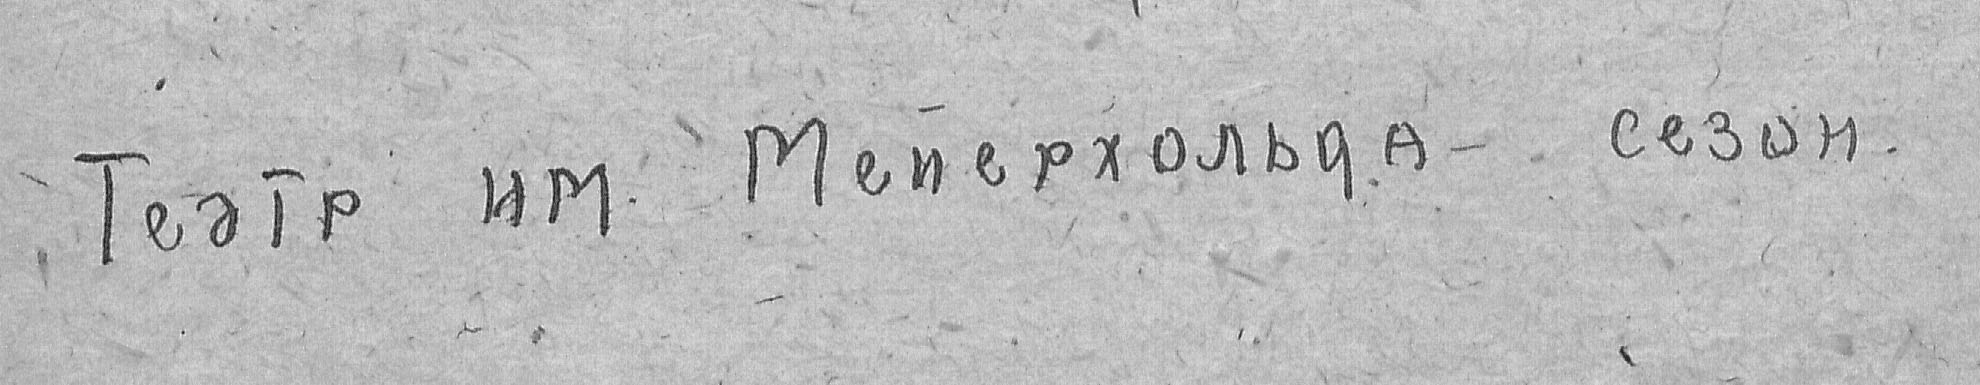 Театр им. Мейерхольда - сезон.